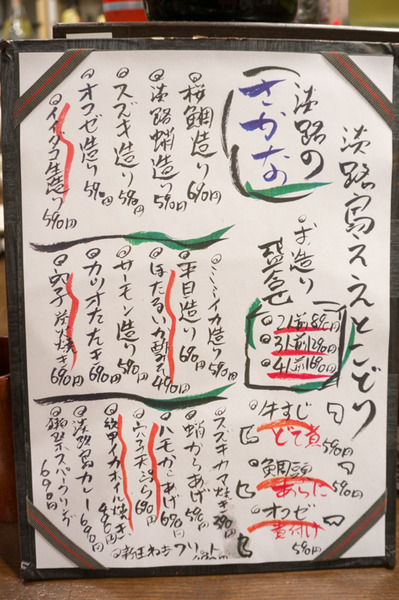 淡路島ええとこどり
淡路の
さかな
桜鯛造り 690円
淡路蛸造り 590円
スズキ造り 590円
オコゼ造り 590円
イイダコ生造り 590円
お造り
盛合せ
2人前890円
3人前1290円
4人前1690円
ミミイカ造り 590円
平目造り 690円
ほたるいか酢みそ 490円
サーモン造り 590円
カツオたたき 690円
穴子炭火焼き 690円
牛すじ
どて煮 590円
鯛頭
あらだき 590円
オコゼ
煮付け 590円
スズキカマ焼き 390円
蛸からあげ 590円
ハモからあげ 690円
穴子天ぷら 690円
紋甲イカホイル焼き
淡路島カレー
御祭スパークリング 690円
新玉ねぎフリット